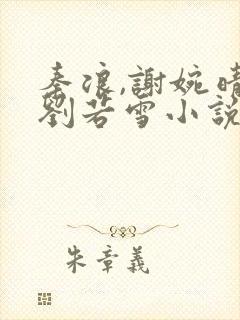 秦浪,謝婉晴
劉若雪小說
朱章義